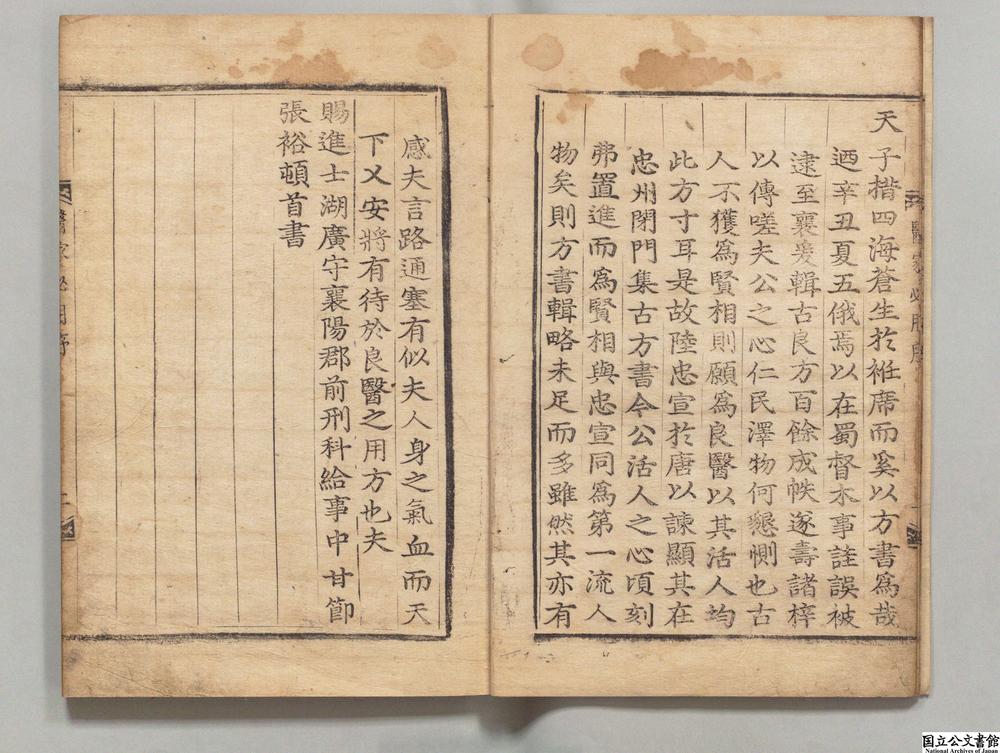 天子措四海蒼生於袵席而奚以方書爲哉
迺辛丑夏五俄焉以在蜀督木事詿誤被
逮至襄爰輯古良方百餘成帙遂壽諸梓
以傳嗟夫公之心仁民澤物何懇惻也古
人不獲爲賢相則願爲良醫以其活人均
此方寸耳是故陸忠宣於唐以諫顯其在
忠州閉門集古方書今公活人之心頃刻
弗置進而爲賢相與忠宣同爲第一流人
物矣則方書輯略未足而多雖然其亦有
感夫言路通塞有似夫人身之氣血而天
下乂安將有待於良醫之用方也夫
賜進士湖廣守襄陽郡前刑科給事中甘節
張裕頓首書
国立公文書館
National Archives of Japan